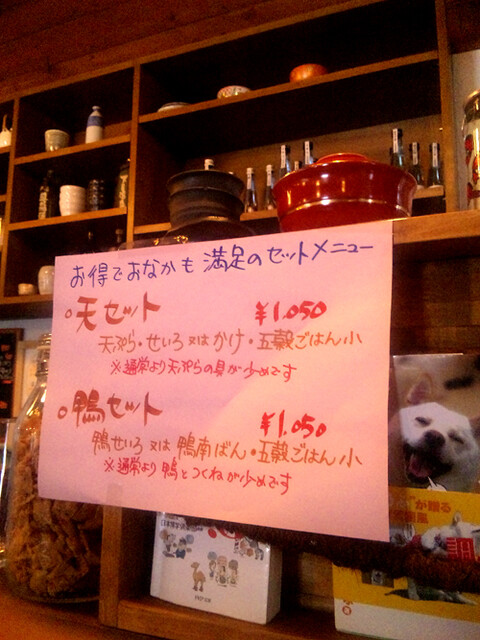 お得でおなかも満足のセットメニュー
○天セット ¥1,050
天ぷら・せいろ又はかけ・五穀ごはん小
※通常より天ぷらの具が少めです
○鴨セット ¥1,050
鴨せいろ又は鴨南ばん・五穀ごはん小
※通常より鴨とつくねが少めです
が贈る